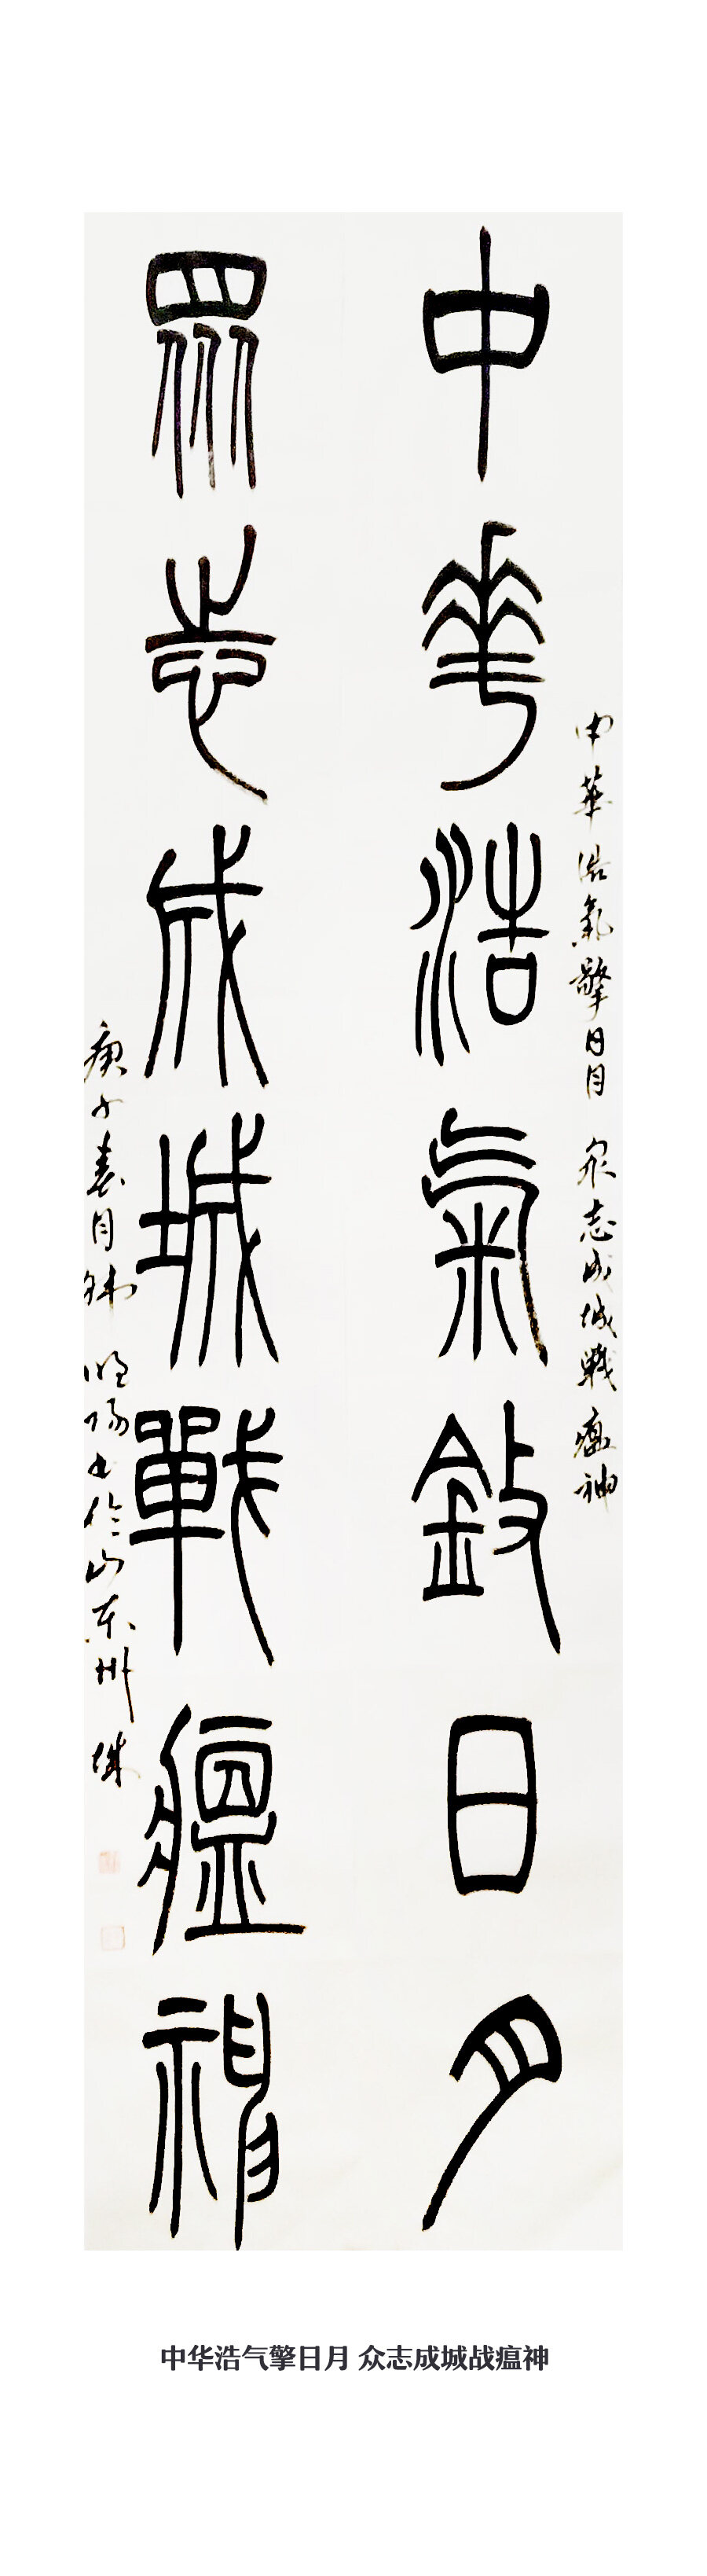 中華浩氣擎日月 眾志成城戰瘟神
中華浩氣敬日月
眾志成城戰瘟神
庚子春月 明陽書於山東
中华浩气擎日月 众志成城战瘟神